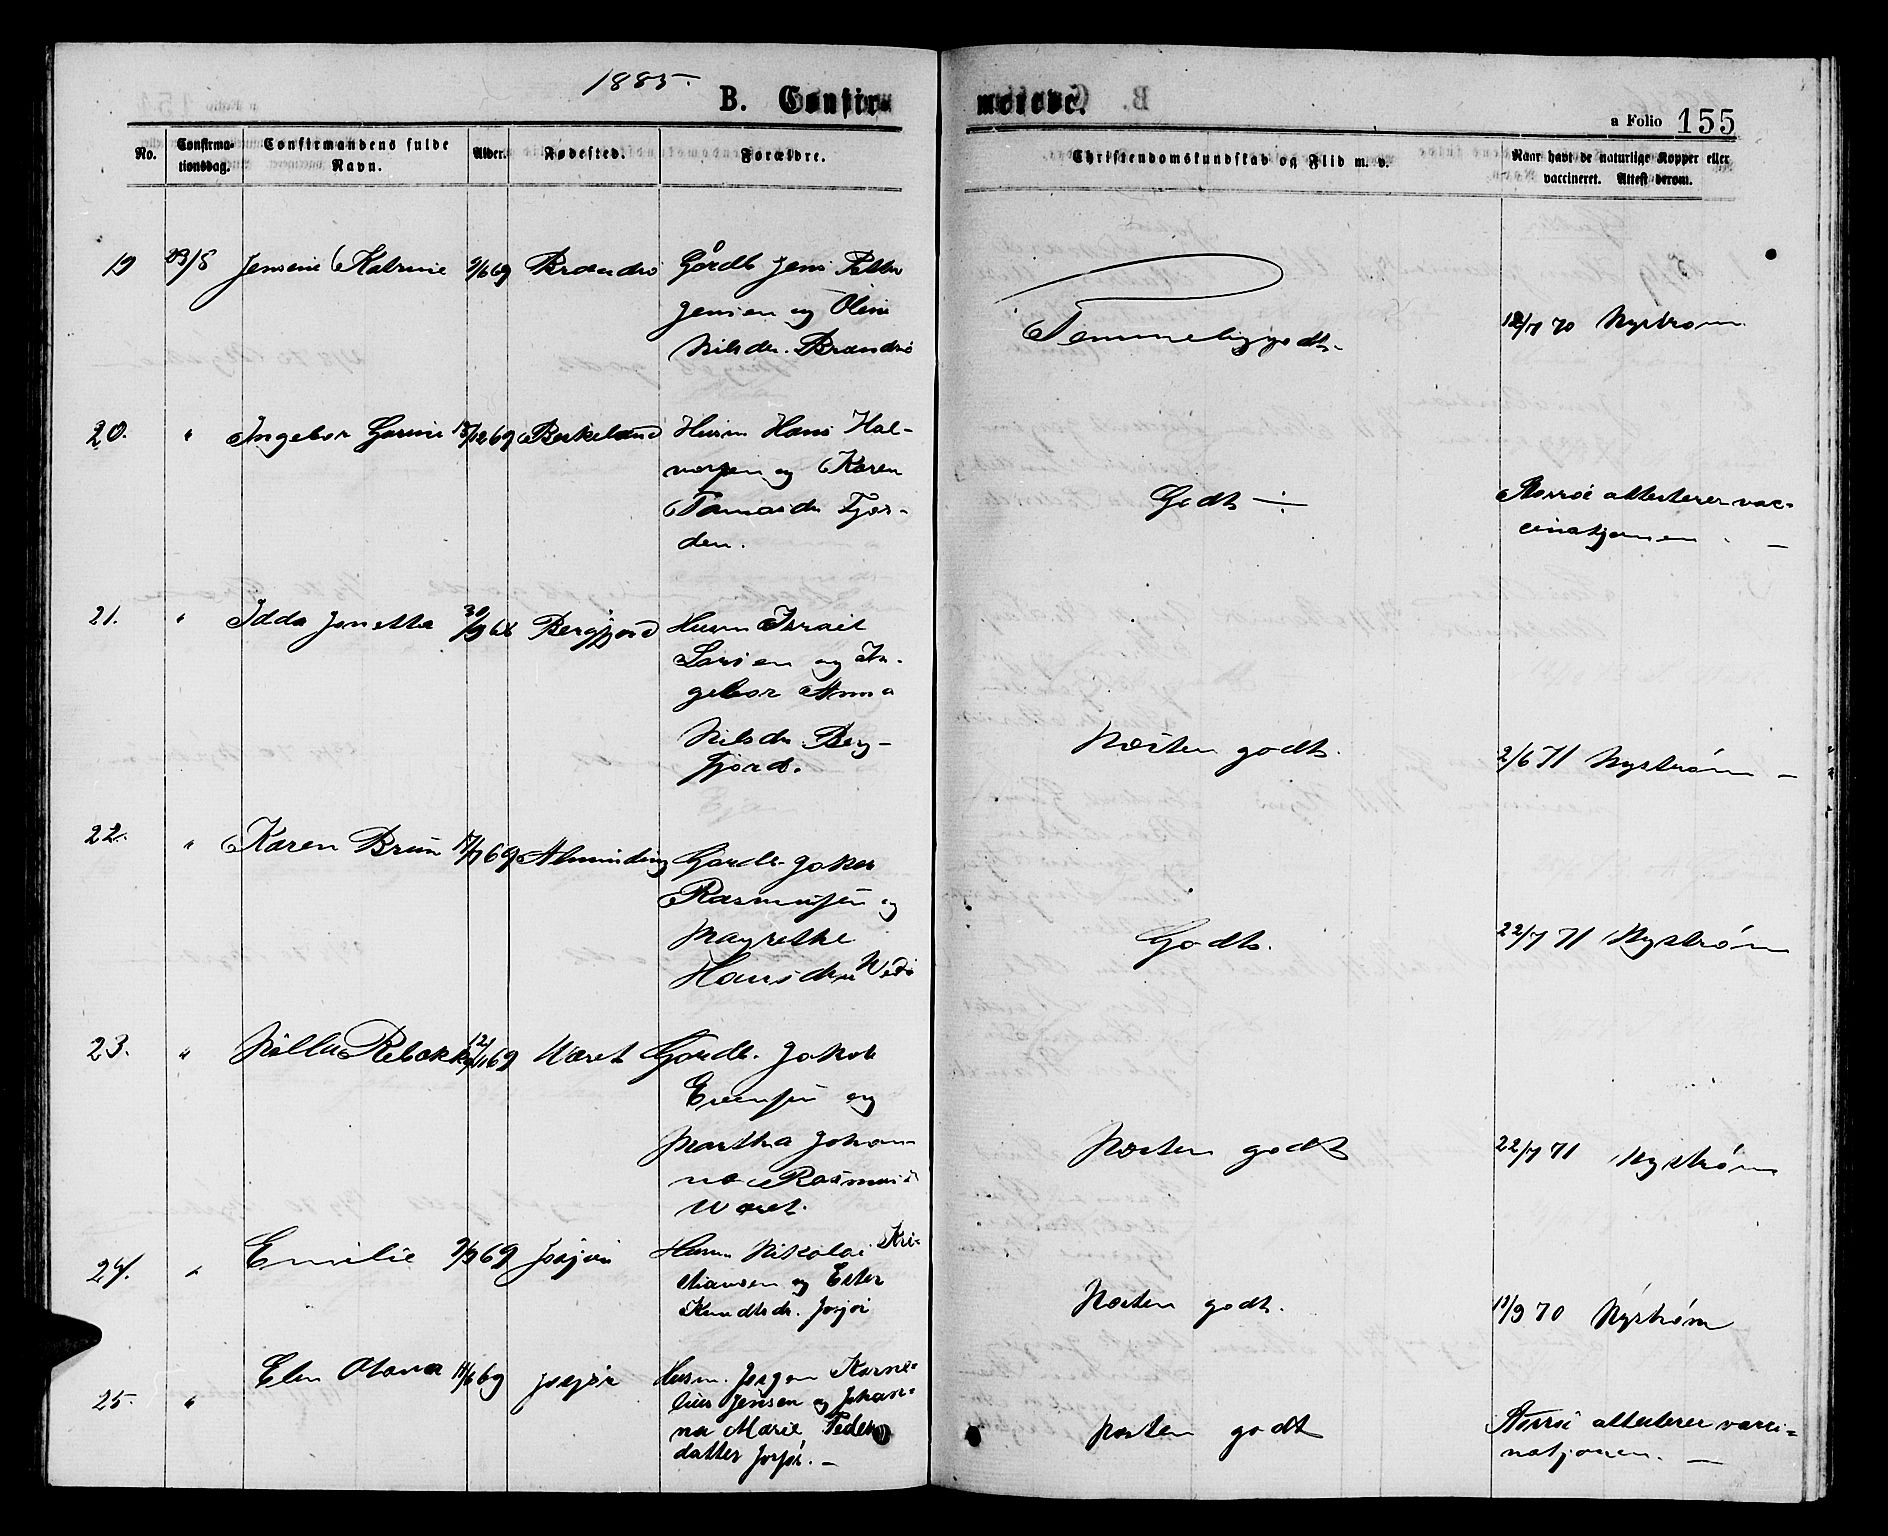 1885.
B. Confir-
merede.
a Folio 155
No.
Confirma-
tionsdag.
Confirmandens fulde
Navn.
Alder.
Fødested.
Forældre.
Christendomskundskab og Flid m. v.
Naar havt de naturlige Kopper eller
vaccineret. Attest derom.
19 23/8 Jensine Katrine 9/6 69 Brændsø Gårdb Jens Petter
Jensen og Oline
Nilsdr. Brændsø
Temmelig godt.
12/7 70 Nystrøm
20. " Ingebor 12/12 69 Berkeland Husm Hans Hal-
vorsen og Karen
Tomasdr Fjor-
den.
Godt ÷
attesterer vac-
cinatjonen. —
21. " Idda Janetta 30/9 68 Bergfjord Husm Israel
Larsen og In-
gebor Anna
Nilsdr. Berg-
fjord.
Næsten godt.
2/6 71 Nystrøm —
22. " Karen Brun 17/7 69 Alminding Gårdb. Joker
Rasmussen og
Magrethe
Hansdr
Godt.
22/7 71 Nystrøm
23. " Rebekka 12/11 69 Været Gårdb. Jakob
Evensen og
Martha Johan
na Rasmusd
Været.
Næsten godt
22/7 71 Nystrøm
24. " Emilie 9/9 69 Husm Nikolai Kri-
stiansen og Ester
Knudtsdr.
Næsten godt.
11/9 70 Nystrøm
25. " Elen 11/6 69 Husm. Jørgen Korne-
lius Jensen og Johan-
na Marie Peder
datter —
Næsten godt
attesterer vacci-
natjonen. —